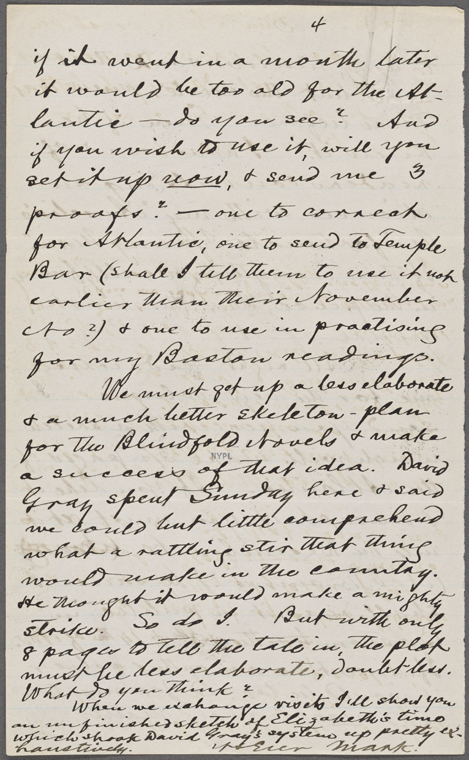 4
if it went in a month later
it would be too old for the At-
lantic — do you see? And
if you wish to use it, will you
set it up now, & send me 3
proofs? — one to correct
for Atlantic, one to send to Temple
Bar (shall I tell them to use it not
earlier than their November
No?) & one to use in practising
for my Boston readings.
We must get up a less elaborate
& a much better skeleton-plan
for the Blindfold Novels & make
a success of that idea. David
NYPL
Gray spent Sunday here & said
we could but little comprehend
what a rattling stir that thing
would make in the country.
He thought it would make a mighty
strike. So do I. But with only
8 pages to tell the tale in, the plot
must be less elaborate, doubtless.
What do you think?
When we exchange visits I'll show you
an unfinished sketch of Elizabeth's time
which shook David Gray's system up pretty ex-
haustively.
Ys Ever Mark.